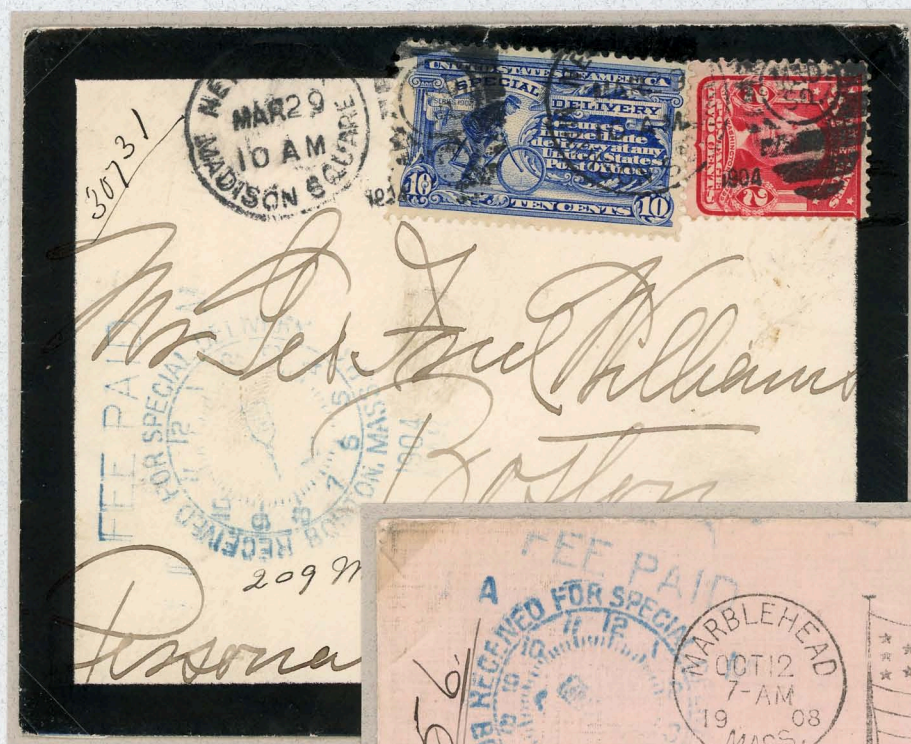 NEW
MAR 29
10 AM
MADISON SQUARE
1904
30731
UNITED STATES OF AMERICA
SPECIAL
DELIVERY
Secures
immediate
delivery at any
United States
Post Office
10 TEN CENTS 10
TWO CENTS
2
1904
Mr Geo Fred Williams
Boston
FEE PAID
RECEIVED FOR SPECIAL DELIVERY
BOSTON, MASS
1904
12
5 6 7 8 9 10
209 M
Persona
FEE PAID
A
RECEIVED FOR SPECIAL
9 10 11 12
56
MARBLEHEAD
OCT 12
7-AM
19 08
MASS.